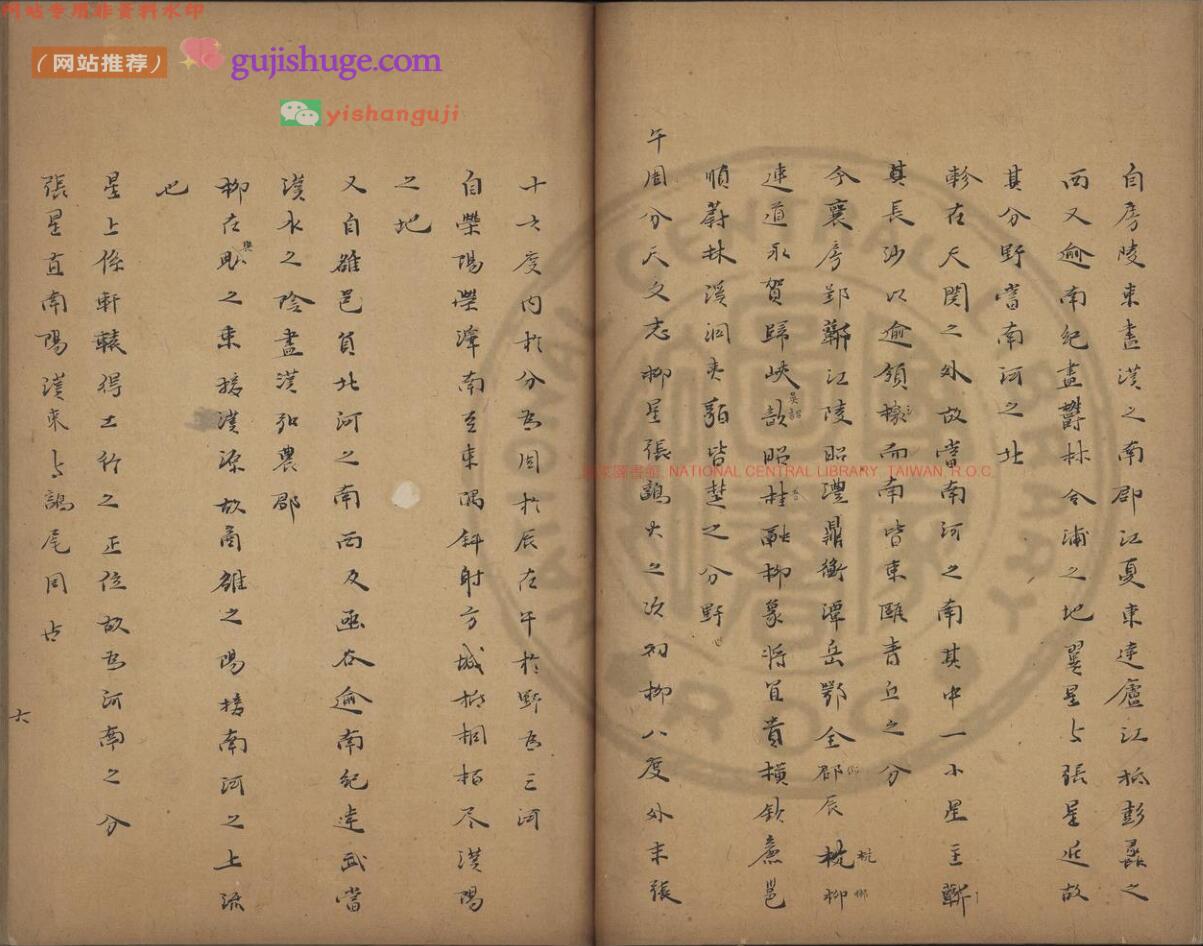 网站专用非资料水印
（网站推荐）
gujishuge.com
yishanguji
自房陵東盡漢之南郡江夏東達廬江抵彭蠡之
西又逾南紀盡欝林合浦之地翼星与張星近故
其分野當南河之北
軫在天関之外故當南河之南其中一小星主
其長沙以逾領而南皆東甌青丘之分
今襄房郢蘄江陵昭澧鼎衡潭岳鄂全郡辰柳
連道永賀歸峽歙昭桂融柳象將宜貴橫欽廉邕
順蔚林溪洞夷貊皆楚之分野
午周分天文志柳星張鶉火之次初柳八度外末張
十六度內於分為周於辰在午於野為三河
自滎陽滎澤南至東隅斜射方城桐柏尽漢陽
之地
又自雒邑負北河之南西及函谷逾南紀達武當
漢水之陰盡漢弘農郡
柳在之東接漢源故商雒之陽接南河之上流
也
星上係軒轅得土行之正位故為河南之分
張星直南陽漢東与鶉尾同占
六
國家圖書館 NATIONAL CENTRAL LIBRARY, TAIWAN, R.O.C.